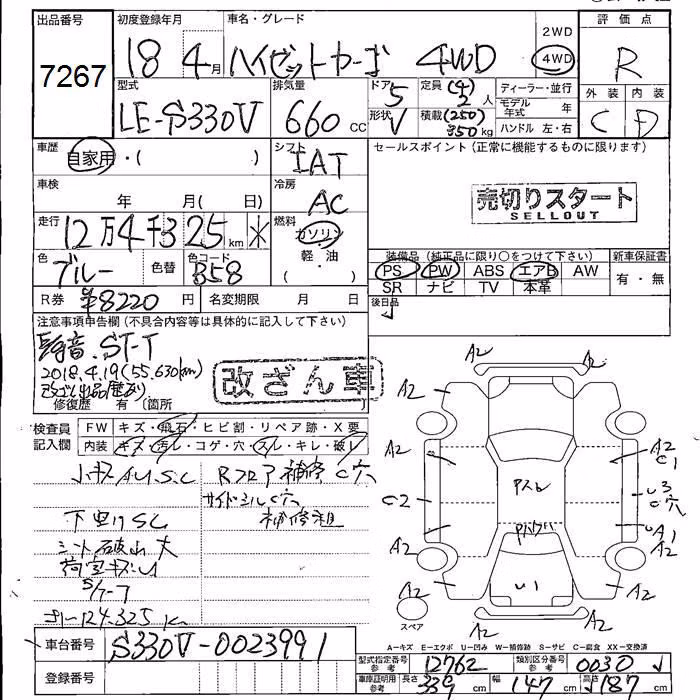 出品番号 初度登録年月 車名・グレード 評価点
7267 18 4月 ハイゼットカーゴ 4WD 2WD 4WD R
型式 排気量 ドア 定員 ディーラー・並行 外装 内装
LE-S330V 660 CC 5 (4) 2人 モデル年式 年 C D
形状 V 積載 (250) 350kg ハンドル 左・右
車歴 自家用・( ) シフト IAT セールスポイント (正常に機能するものに限ります)
車検 年 月( 日) 冷房 AC 売切りスタート
SELLOUT
走行 12万4千325km ※ 燃料 ガソリン
軽・油
色 ブルー 色替 色コード B58
装備品 (純正品に限り○をつけて下さい) 新車保証書
PS PW ABS エアB AW 有・無
SR ナビ TV 本革
R券 ¥8220円 名変期限 月 日 後日品
注意事項申告欄 (不具合内容等は具体的に記入して下さい)
異音、ST-T
2018.4.19(55,630km)
改ざん出品歴あり 改ざん車
修復歴 有 (箇所
検査員記入欄 FW キズ・飛石・ヒビ割・リペア跡・X要
内装 キズ・汚レ・コゲ・穴・スレ・キレ・破レ
小キズAU S.C Rフロア補修 C穴
サイドシルC穴
下回りSC 補修粗
シート破れ大
荷室キズU
S/T-7
メーター124,325K
A2
A2 A2
A2 A2 C1
C2 U3 C穴
Pスレ
Pバック
A2 UA1
A2
U1
A2 A2
A2
スペア
A-キズ E-エクボ U-凹み W-補修跡 S-サビ C-腐食 XX-交換済
車台番号 S330V-0023991
型式指定番号 参考 12762 類別区分番号 参考 0030
登録番号
車庫証明用 参考 長さ 339 幅 147 高さ 187 cm